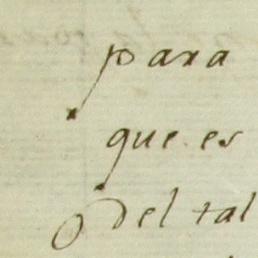 para
que es
del tal